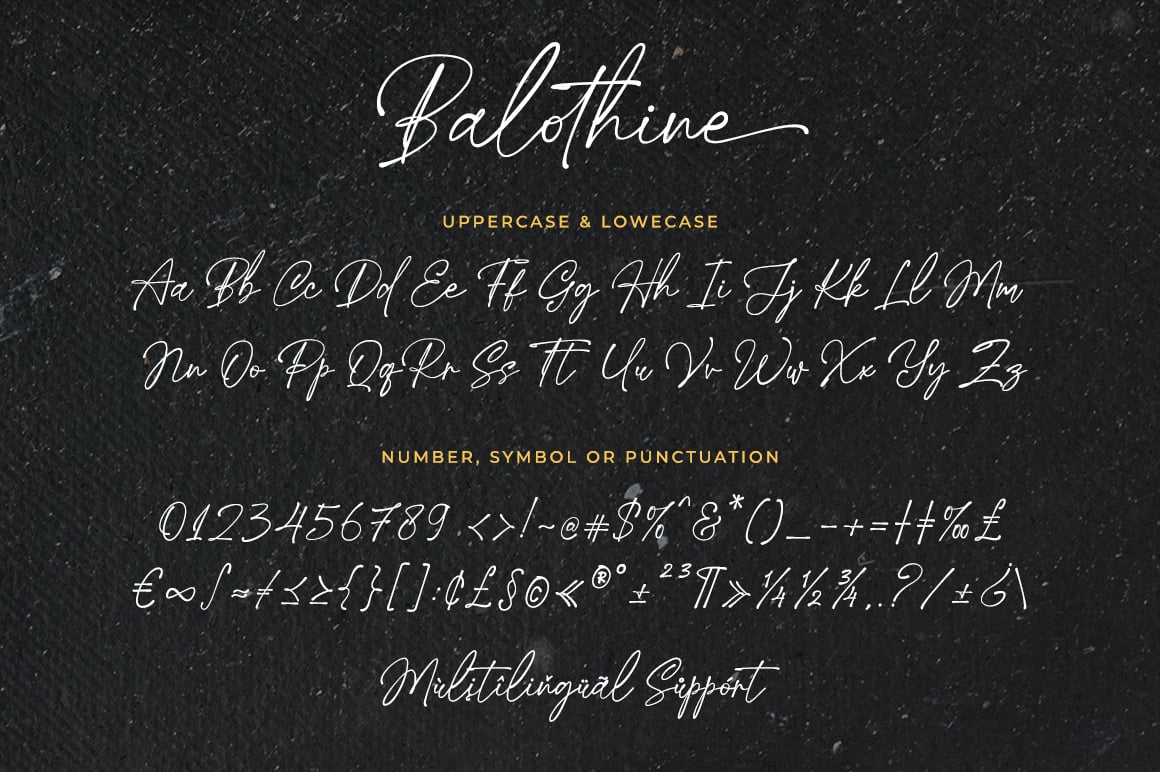 Balothine
UPPERCASE & LOWECASE
Aa Bb Cc Dd Ee Ff Gg Hh Ii Jj Kk Ll Mm
Nn Oo Pp Qq Rr Ss Tt Uu Vv Ww Xx Yy Zz
NUMBER, SYMBOL OR PUNCTUATION
0123456789 <>!~@#$%^&*()_-+=†‡‰£
€∞∫≈≠≤≥{}[]:¢£§©«®°±²³¶»¼½¾,.?/±¿\
Mùlştîlıňgüãl Sůppórt